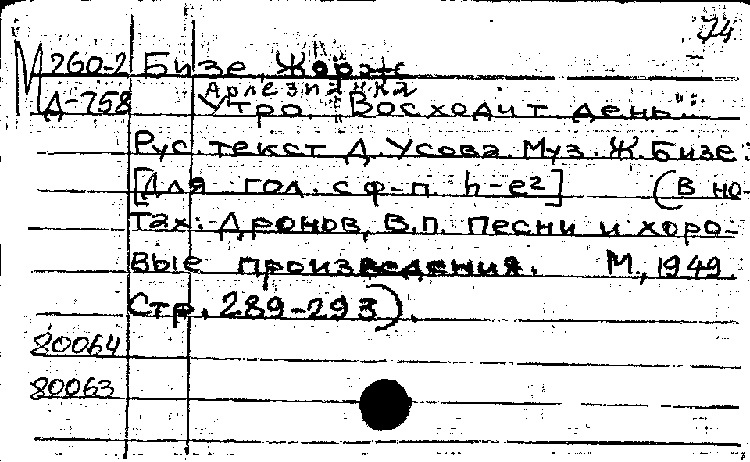 74
М 260-2 Бизе, Жорж
Арлезианка
Д-758 Утро. "Восходит день".
Рус. текст Д. Усова. Муз. Ж. Бизе.
[Для гол. с ф-п. h-e²] (В но-
тах: Дронов, В.П. Песни и хоро-
вые произведения. М., 1949.
Стр. 289-293).
80064
80063